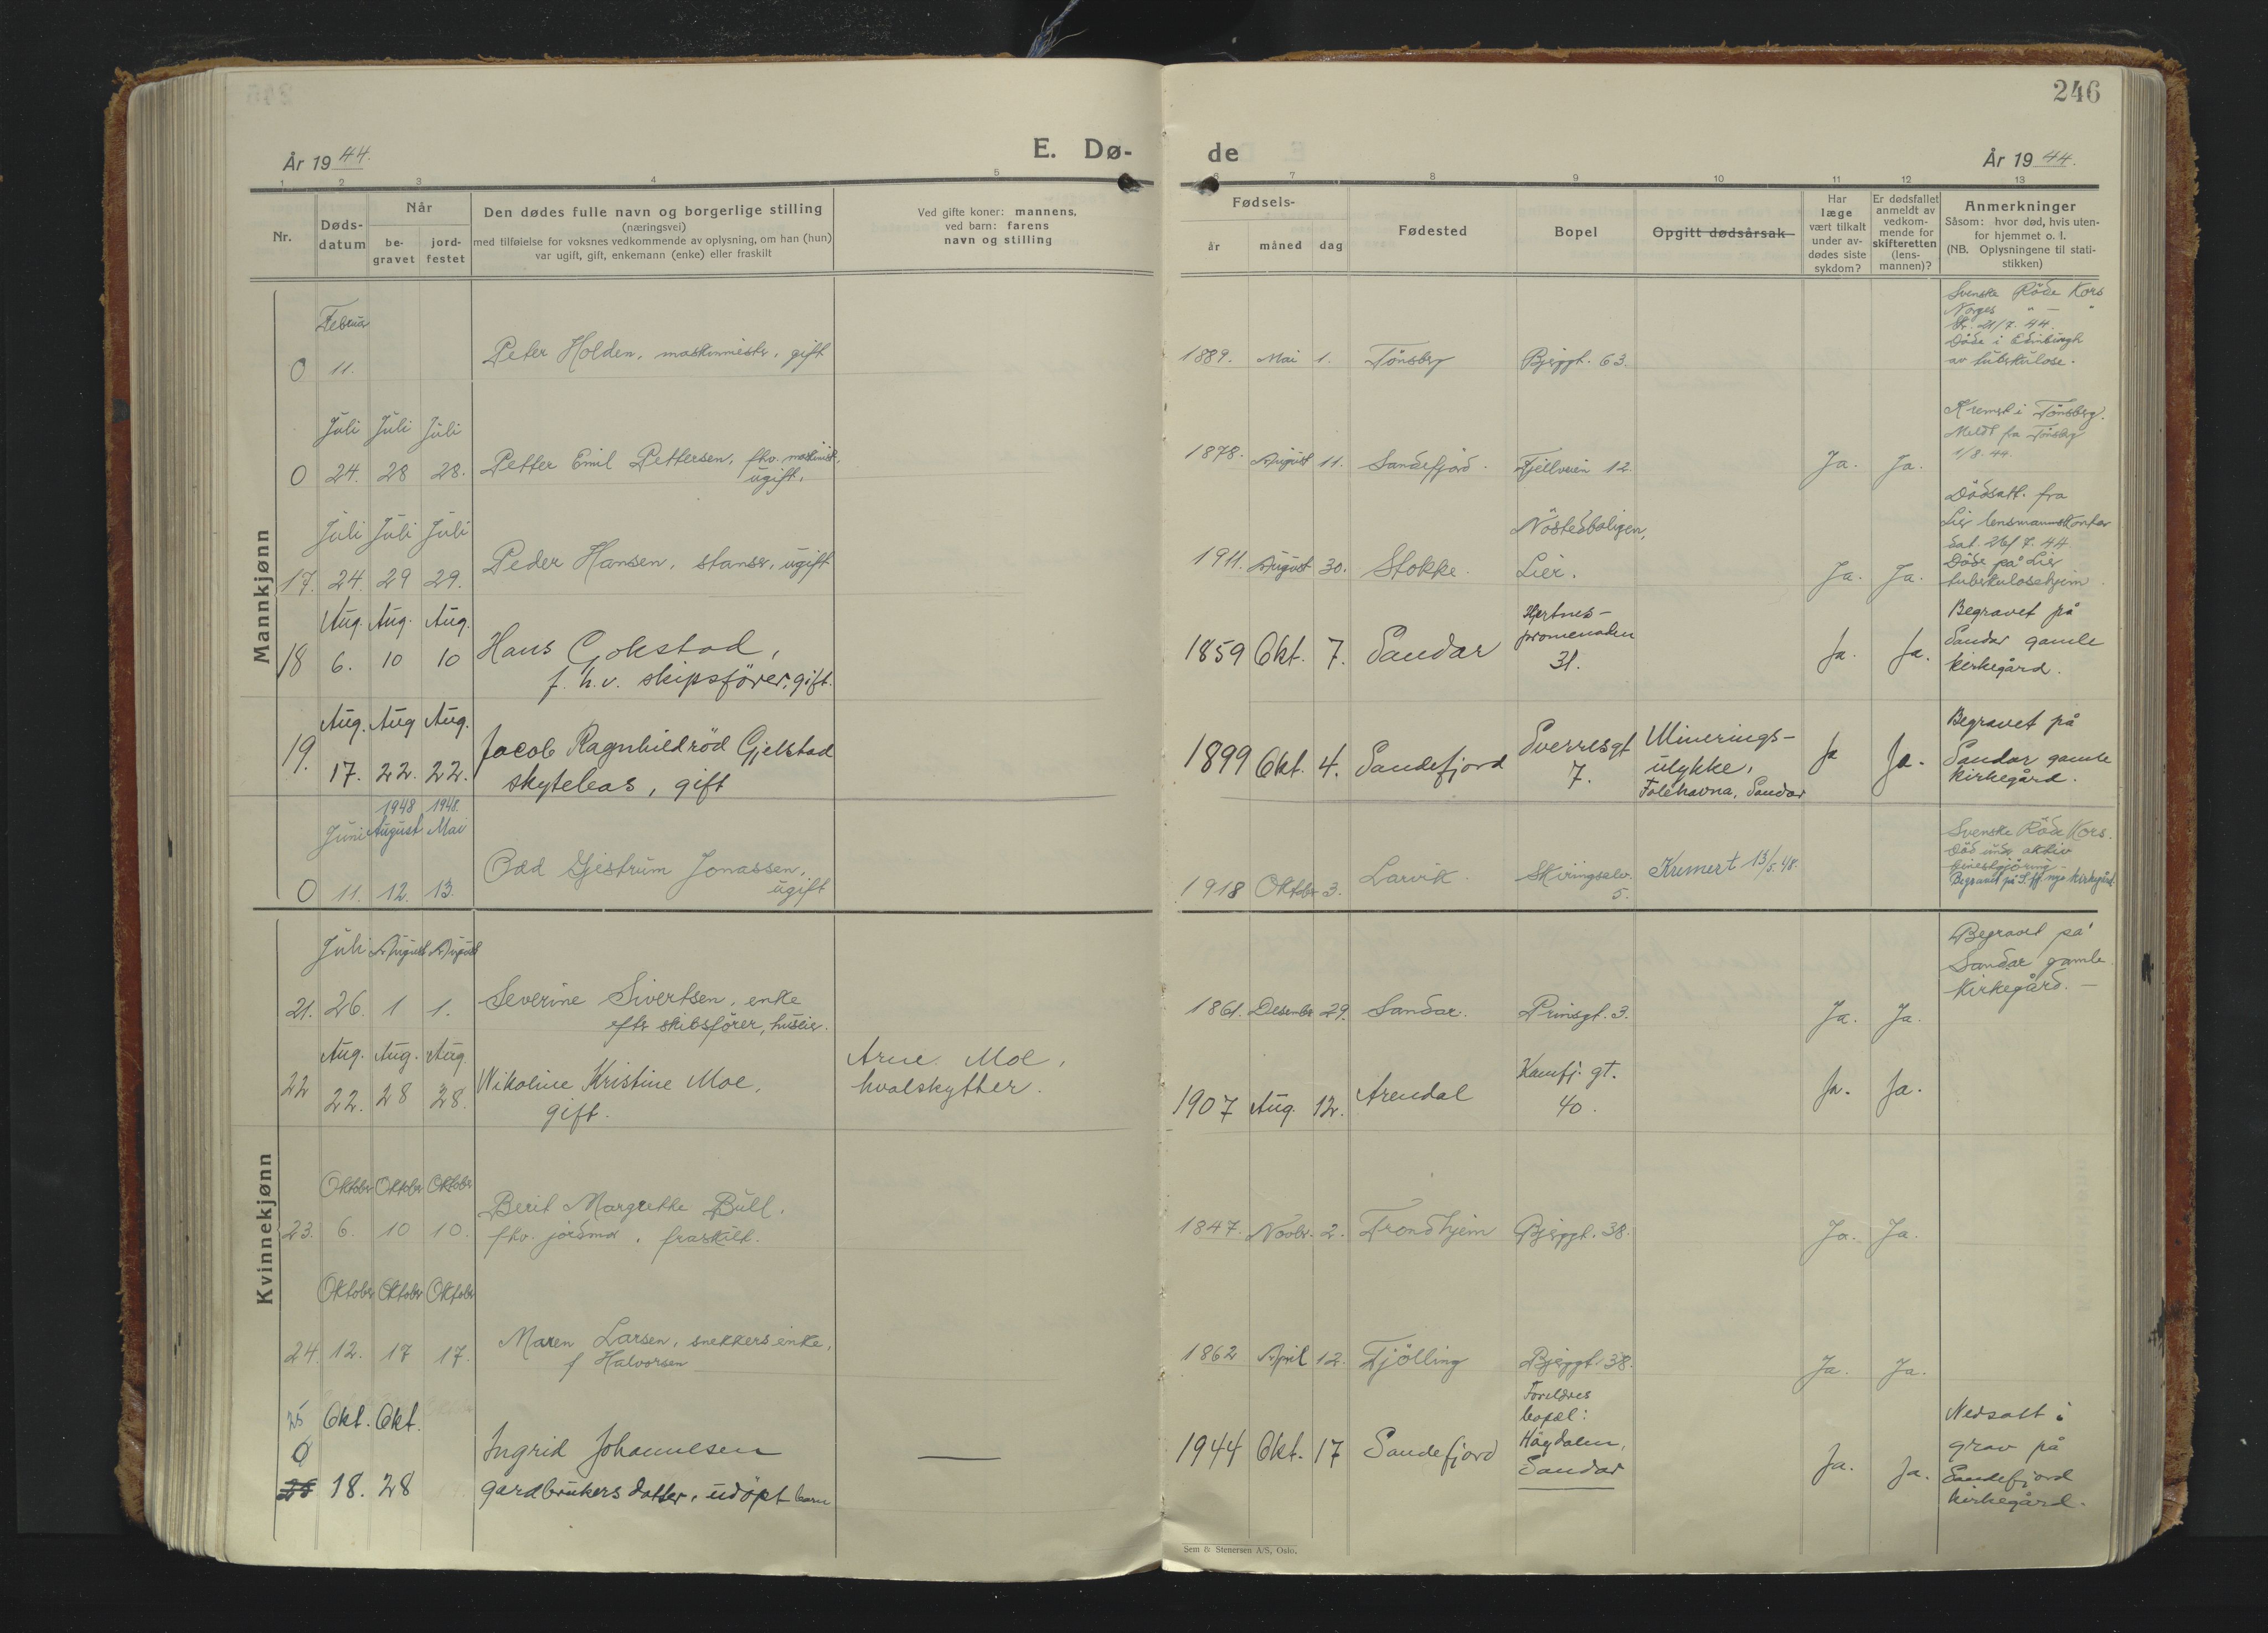 246
År 1944.
E. Dø-
de
År 1944.
1 2 3 4 5 6 7 8 9 10 11 12 13
Nr.
Døds-
datum
Når
be-
gravet
jord-
festet
Den dødes fulle navn og borgerlige stilling
(næringsvei)
med tilføielse for voksnes vedkommende av oplysning, om han (hun)
var ugift, gift, enkemann (enke) eller fraskilt
Ved gifte koner: mannens,
ved barn: farens
navn og stilling
Fødsels-
år måned dag
Fødested
Bopel
Opgitt dødsårsak
Har
læge
vært tilkalt
under av-
dødes siste
sykdom?
Er dødsfallet
anmeldt av
vedkom-
mende for
skifteretten
(lens-
mannen)?
Anmerkninger
Såsom: hvor død, hvis uten-
for hjemmet o. l.
(NB. Oplysningene til stati-
stikken)
Mannkjønn
Februar
0 11. Peter Holden, maskinmester, gift
1889. Mai 1. Tönsberg Bjerggt. 63.
Svenske Röde Kors
Norges " — "
21/7. 44.
Döde i
av tuberkulose.
Juli Juli Juli
0 24. 28 28. Petter Emil Pettersen, fhv. maskinist,
ugift.
1878. August 11. Sandefjord. Fjellveien 12. Ja. Ja.
Kremert i Tönsberg.
Meldt fra Tönsberg
1/8. 44.
Juli Juli Juli
17. 24. 29 29. Peder Hansen, stanser, ugift
1911. August 30. Stokke. Nöstedboligen,
Lier. Ja. Ja.
Dödsatt. fra
Lier lensmannskontor
dat. 26/7. 44
Döde på Lier
tuberkulosehjem.
Aug. Aug. Aug.
18 6. 10 10 Hans Gokstad,
f.h.v. skipsförer, gift.
1859 Okt. 7. Sandar Hjertnes-
promenaden
31. Ja. Ja.
Begravet på
Sandar gamle
kirkegård.
Aug. Aug Aug.
19. 17. 22. 22. Jacob Ragnhildröd Gjelstad
skytebas, gift
1899 Okt. 4. Sandefjord Sverresgt
7. Minerings-
ulykke,
Folehavna, Sandar Ja Ja.
Begravet på
Sandar gamle
kirkegård.
1948 1948.
Juni August Mai
0 11. 12. 13. Odd Gjestrum Jonassen,
ugift
1918 Oktober 3. Larvik. Skiringsalv.
5. Kremert 13/5. 48.
Svenske Röde Kors.
Död under aktiv
Begravet på S.fj. nye kirkegård
Kvinnekjønn
Juli August August
21. 26. 1 1. Severine Sivertsen, enke
efter skibsförer, huseier.
1861. Desember 29. Sandar. Prinsgt. 3. Ja. Ja.
Begravet på
Sandar gamle
kirkegård. —
Aug. Aug. Aug
22 22. 28 28. Nikoline Kristine Moe,
gift.
Arne Moe,
hvalskytter.
1907 Aug. 12. Arendal Kamfj. gt.
40. Ja. Ja.
Oktober Oktober Oktober
23. 6. 10 10. Berit Margrethe Bull,
fhv. jordmor, fraskilt.
1847. Novbr. 2. Trondhjem Bjerggt. 38. Ja. Ja.
Oktober Oktober Oktober
24. 12. 17 17. Maren Larsen, snekkers enke,
f Halvorsen
1862 April 12. Tjölling Bjerggt. 38. Ja. Ja.
25 Okt. Okt.
0
25 18. 28 Ingrid Johannesen
gardbrukers datter, udöpt barn
1944 Okt. 17 Sandefjord Foreldres
bopel:
Haugdalen,
Sandar Ja. Ja.
Nedsatt i
grav på
Sandefjord
kirkegård.
Sem & Stenersen A/S, Oslo.